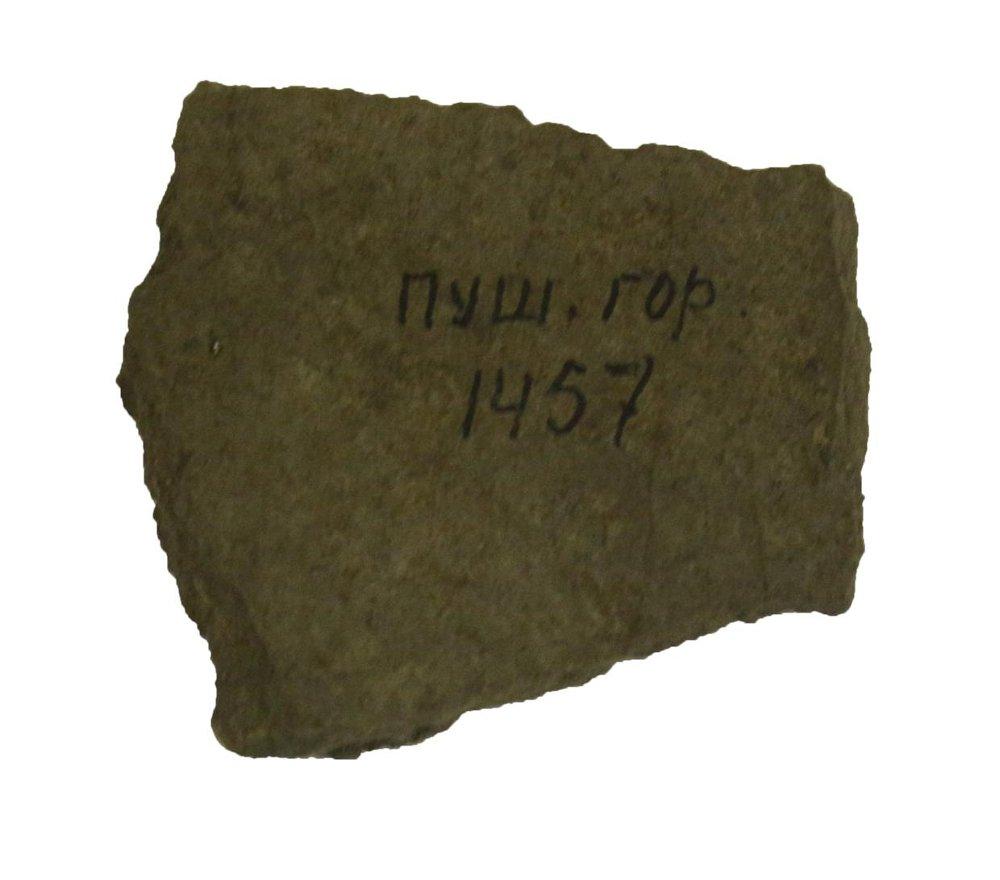 пуш. гор.
1457